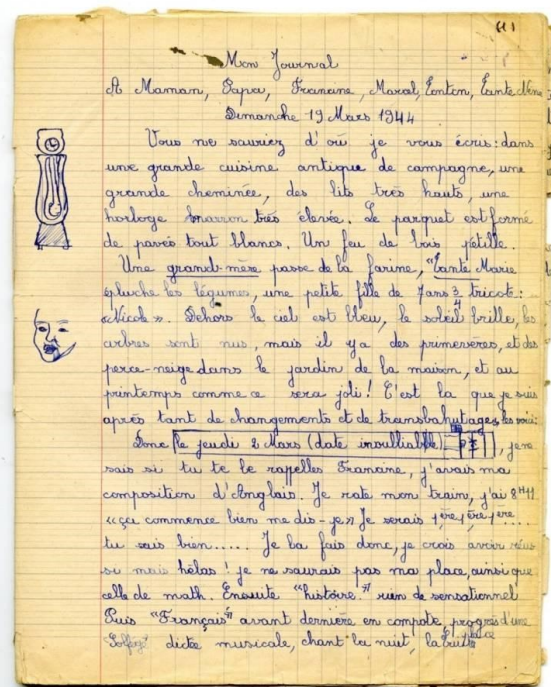 Mon Journal
A Maman, Papa, Francine, Marcel, Tonton, Tante Nine
Dimanche 19 Mars 1944
Vous ne sauriez d'où je vous écris: dans
une grande cuisine antique de campagne, une
grande cheminée, des lits très hauts, une
horloge marron très élevée. Le parquet est formé
de pavés tout blancs. Un feu de bois pétille.
Une grand-mère passe de la farine, "Tante Marie
épluche les légumes, une petite fille de 7ans 3/4 tricote:
"Nicole". Dehors le ciel est bleu, le soleil brille, les
arbres sont nus, mais il y a des primevères, et des
perce-neige dans le jardin de la maison, et au
printemps comme ce sera joli! C'est la que je suis
après tant de changements et de transbahutages les voici:
Donc le jeudi 2 Mars (date inoubliable), je ne
sais si tu te le rapelles Francine, j'avais ma
composition d'Anglais. Je rate mon train, j'ai 8H11
"ça commence bien me dis-je" Je serais 1ère, 1ère, 1ère....
tu sais bien..... Je la fais donc, je crois avoir réus
si mais hélas! je ne saurais pas ma place, ainsi que
celle de math. Ensuite "histoire" rien de sensationnel
Puis "Français" avant dernière en compote, progrès d'une place
"Solfège" dictée musicale, chant la nuit, la